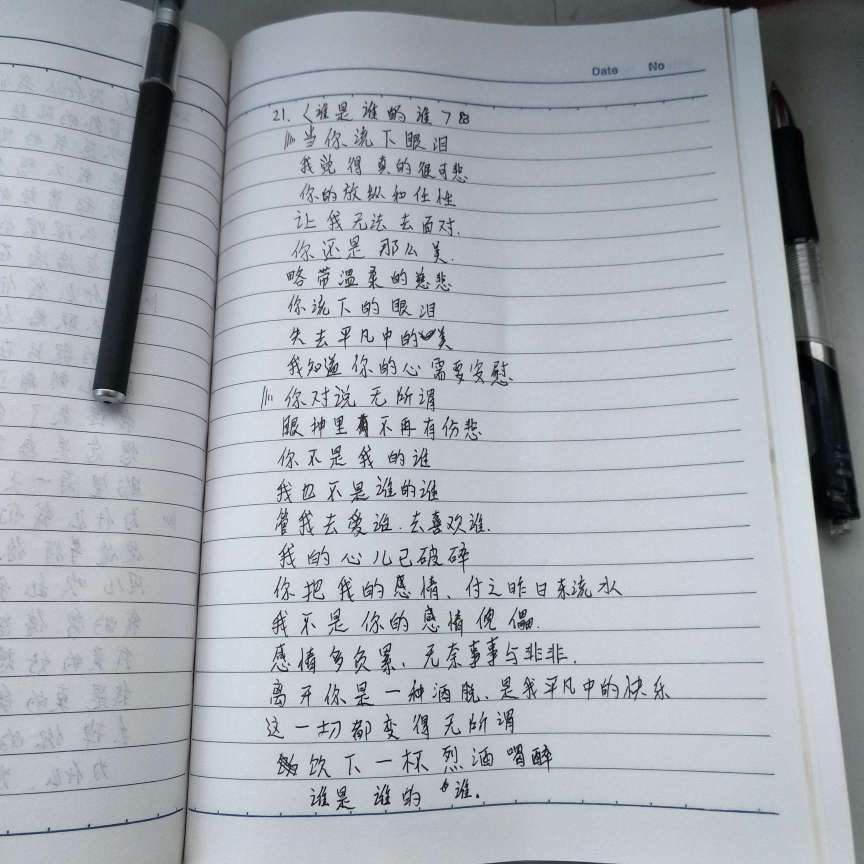 Date No
21.〈谁是谁的谁〉
当你流下眼泪
我觉得真的很可悲
你的放纵和任性
让我无法去面对.
你还是那么美.
略带温柔的慈悲
你流下的眼泪
失去平凡中的美
我知道你的心需要安慰.
你对说无所谓
眼神里不再有伤悲
你不是我的谁
我也不是谁的谁
管我去爱谁.去喜欢谁.
我的心儿已破碎
你把我的感情、付之昨日东流水
我不是你的感情傀儡.
感情多负累、无奈事事与非非.
离开你是一种洒脱、是我平凡中的快乐
这一切都变得无所谓
饮下一杯烈酒喝醉
谁是谁的谁。